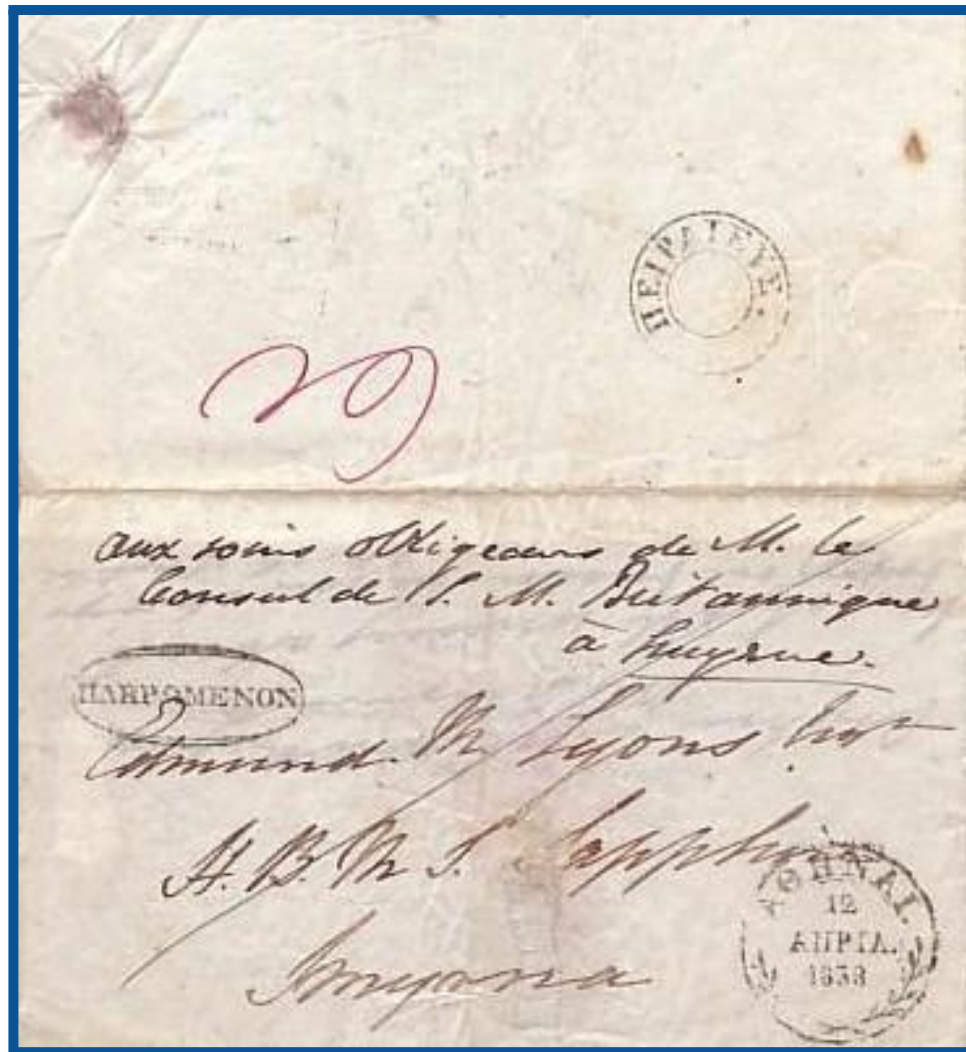 ΠΕΙΡΑΙΕΥΣ.
aux soins obligeans de M. le
Consul de S. M. Britannique
à Smyrne.
ΠΑΡΡΟΜΕΝΟΝ
Edmund M Lyons
H. B. M S. Sapphire
Smyrna
ΑΘΗΝΑΙ.
12
ΑΠΡΙΛ.
1838